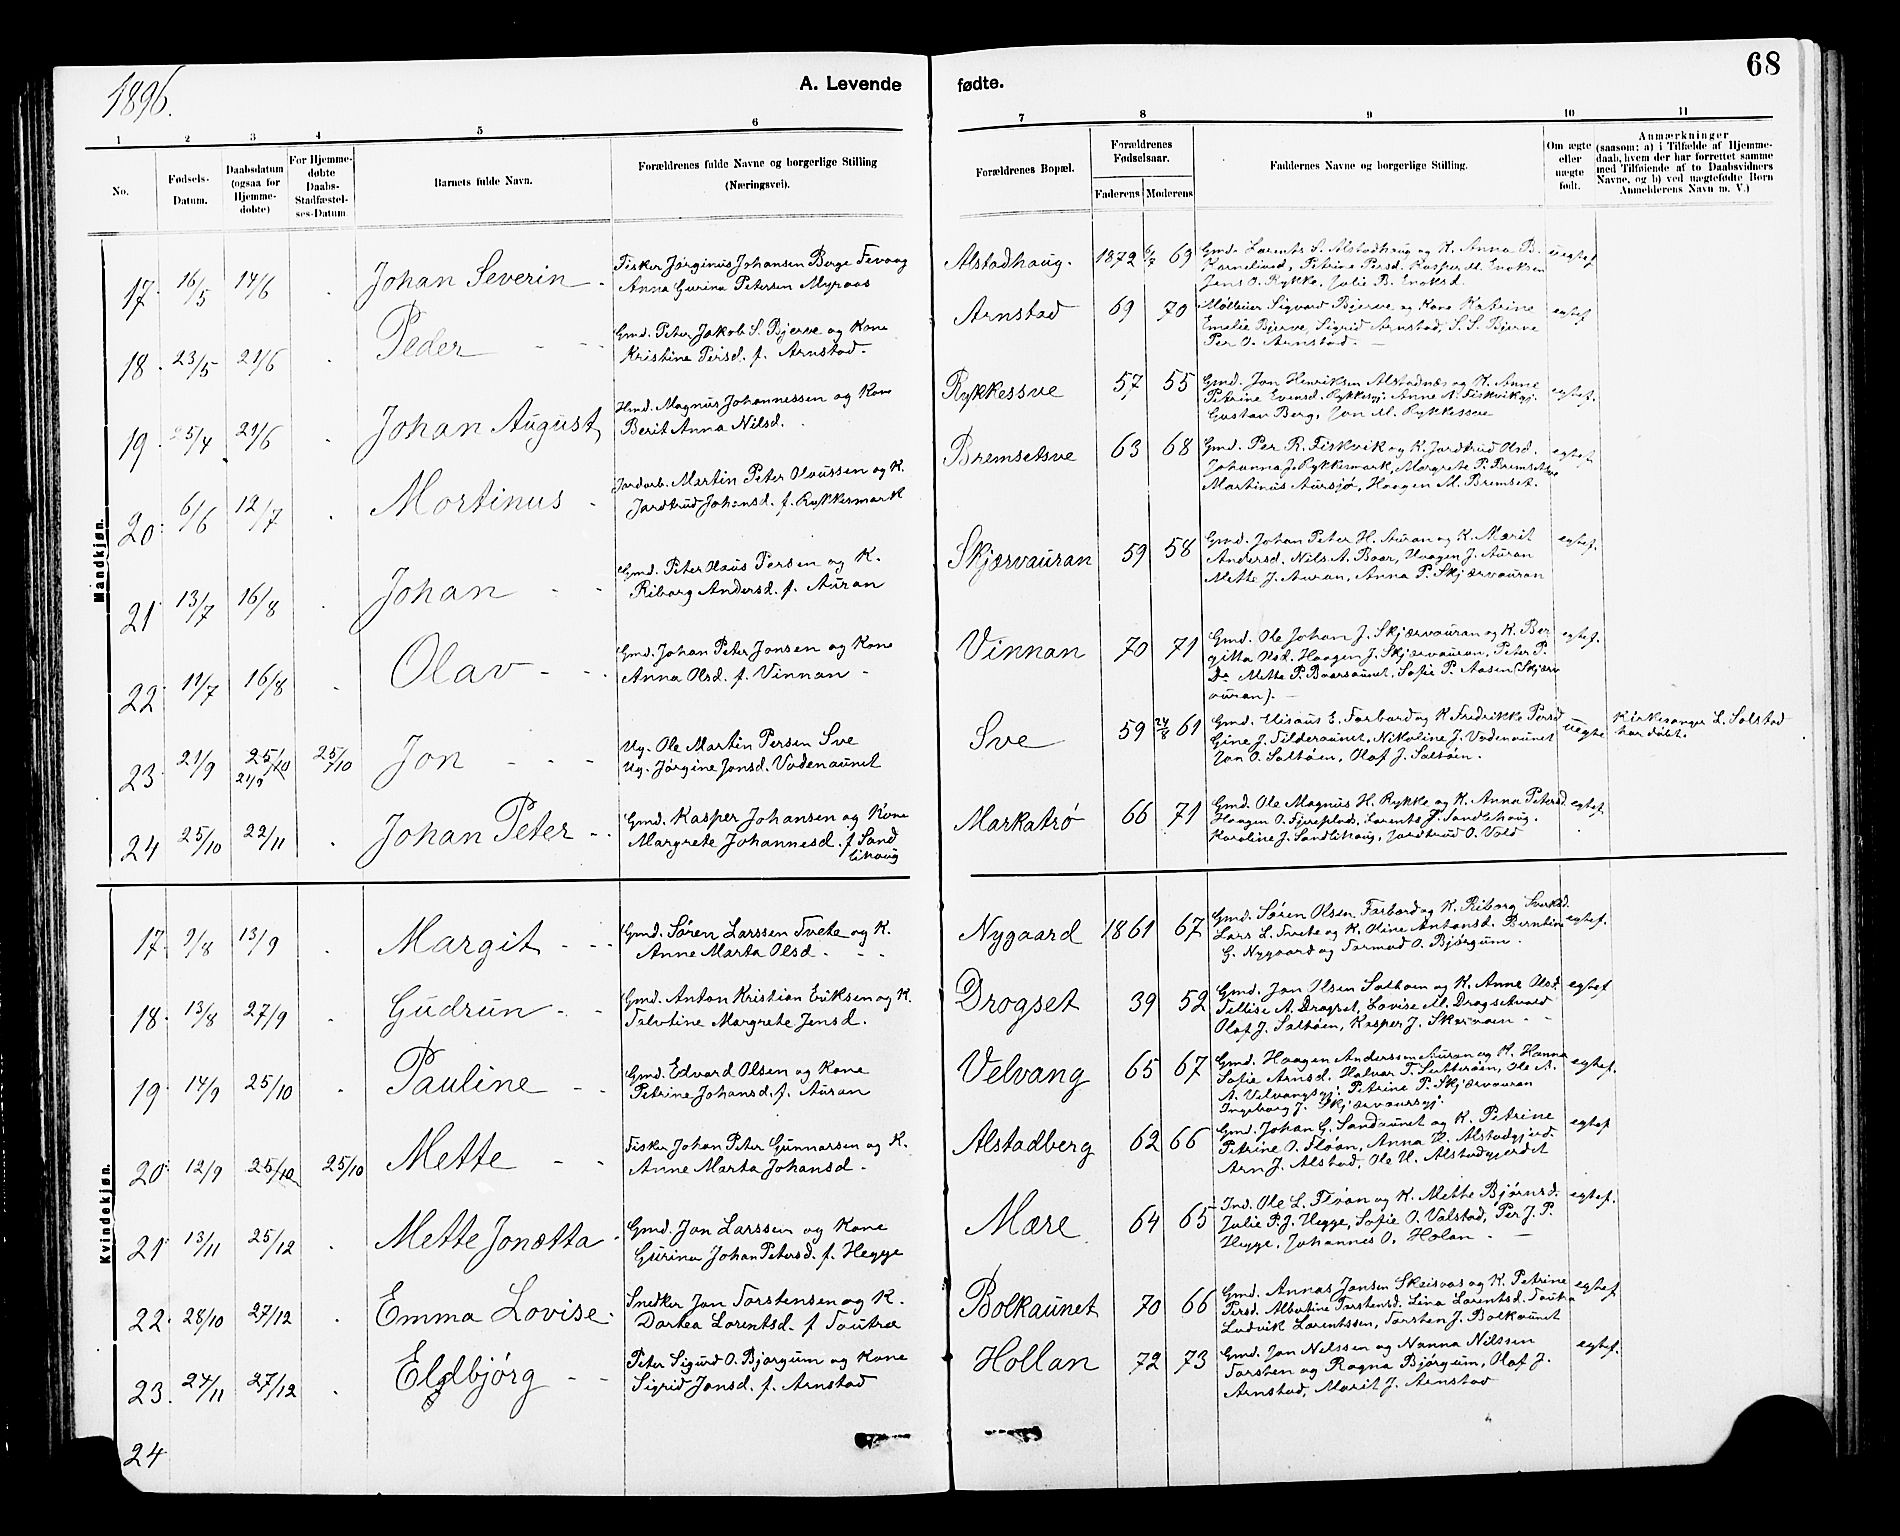 1896.
A. Levende
fødte.
68
1 2 3 4 5 6 7 8 9 10 11
No.
Fødsels-Datum.
Daabsdatum (ogsaa for Hjemmedøbte)
For Hjemmedøbte Daabs-Stadfæstelses-Datum
Barnets fulde Navn.
Forældrenes fulde Navne og borgerlige Stilling (Næringsvei).
Forældrenes Bopæl.
Forældrenes Fødselsaar.
Faderens Moderens
Faddernes Navne og borgerlige Stilling.
Om ægte eller uægte født.
Anmærkninger (saasom: a) i Tilfælde af Hjemmedaab, hvem der har forrettet samme med Tilføiende af to Daabsvidners Navne, og b) ved uægtefødte Børn Anmelderens Navn m. V.)
Mandkjøn.
17. 16/5 14/6 Johan Severin
Fisker Jørginus Johansen Berge
Anna Gurina Petersen
Alstadhaug. 1872 69
Gmd. Larents S. Alstadhaug og K. Anna B.
Petrine Persd. Kasper M. Enoksen
Jens O. Rykke, Julie B. Enoksd.
uegtef.
18. 23/5 21/6 Peder
Gmd. Peter Jakob S. Bjerve og Kone
Kristine Persd. f. Arnstad.
Arnstad 69 70
Sigvard Bjerve og Kone Katrine
Emelie Bjerve, Sigrid Arnstad, S. S. Bjerve
Per O. Arnstad.
egtef.
19. 25/4 21/6 Johan August
Hmd. Magnus Johannessen og Kone
Berit Anna Nilsd.
Rykkessve 57 55
Gmd. Jon Henriksen Alstadnæs og K. Anne
Petrine Evensd. Rykkesvj. Anne N. Fiskvikvj.
Gustav Berg, Jon M. Rykkessve
egtef.
20. 6/6 12/7 Mortinus
Jordarb. Martin Peter Olaussen og K.
Jardtrud Johansd. f. Rykkesmark
Bremsetsve 63 68
Gmd. Per R. Fiskvik og K. Jardtrud Olsd.
Johanna J. Rykkesmark, Margrete P. Bremsetsve
Martinus Aursjø, Haagen M. Bremset.
egtef.
21. 13/7 16/8 Johan
Gmd. Peter Olaus Persen og K.
Riborg Andersd. f. Auran
Skjærvauran 59 58
Gmd. Johan Peter H. Auran og K. Marit
Andersd. Nils A. Boar, Haagen J. Auran
Mette J. Auran, Anna P. Skjærvauran
egtef.
22. 11/7 16/8 Olav
Gmd. Johan Peter Jonsen og Kone
Anna Olsd. f. Vinnan
Vinnan 70 71
Gmd. Ole Johan J. Skjærvauran og K. Ber
gitta Olsd. Haagen J. Skjærvauran, Peter P.
Do Mette P. Boarsaunet, Sofie P. Aasen (Skjærv
auran).
egtef.
23. 21/9 25/10 21/9 25/10 Jon
Ug. Ole Martin Persen Sve
Ug. Jørgine Jonsd. Vodenaunet
Sve 59 24/8 61
Gmd. Elisæus E. Forbord og K Fredrikke Persd
Gine J. Tilderaunet, Nikoline J. Vodenaunet
Jon O. Saltøien, Olaf J. Saltøien.
uegte
Kirkesanger L. Salstad
har døbt.
24 25/10 22/11 Johan Peter
Gmd. Kasper Johansen og Kone
Margrete Johannesd. f Sand
lihaug
Markatrø 66 71
Gmd. Ole Magnus H. Rykke og K. Anna Petersd.
Haagen O. Larents J. Sandlihaug.
Karoline J. Sandlihaug, Jardtrud O. Vold
egtef.
Kvindekjøn.
17. 9/8 13/9 Margit
Gmd. Søren Larssen Tvete og K.
Anne Marta Olsd.
Nygaard 1861 67
Gmd. Søren Olsen Forbord og K. Riborg
Lars L. Tvete og K. Oline Antonsd. Berntine
G. Nygaard og Tormod O. Bjørgum.
egtef.
18. 13/8 27/9 Gudrun
Gmd. Anton Kristian Eriksen og K.
Margrete Jensd.
Drogset 39 52
Gmd. Jon Olsen Saltøien og K. Anne Olsd.
A. Drogset, Lovise M. Drogsetvald
Olaf J. Saltøien, Kasper J.
egtef
19. 14/9 25/10 Pauline
Gmd. Edvard Olsen og Kone
Petrine Johansd. f. Auran
Velvang 65 67
Gmd. Haagen Anderssen Auran og K. Hanna
Sofie Arnsd. Halvar T. Sutterøien, Ole A.
A. Velvangsvj. Petrine P. Skjærvauran
Ingeborg J. Skjærvaursvj.
egtef.
20. 12/9 25/10 25/10 Mette
Fisker Johan Peter Gunnarsen og K.
Anne Marta Johansd.
Alstadberg 62 66
Gmd. Johan G. Sandaunet og K. Petrine
Petrine O. Fløan, Anna H. Alstadgjerd.
Arn J. Alstad, Ole H. Alstadgjerdet
egtef
21. 13/11 25/12 Mette Jonætta
Gmd. Jon Larssen og Kone
Gurina Johan Petersd. f. Hegge
Mære 64 65
Ind. Ole L. Fløan og K. Mette Bjørnsd.
Julie P. J. Hegge, Sofie O. Valstad, Per J. P.
Hegge, Johannes O. Holan.
egtef.
22. 28/10 27/12 Emma Lovise.
Snedker Jon Torstensen og K.
Dortea Lorentsd. f Tautra
Bolkaunet 70 66
Gmd. Annas Jonsen og K. Petrine
Persd. Albertine Torstensd. Lina Lorentsd. Tautra
Ludvik Lorentssen, Torsten J. Bolkaunet
egtef
23. 24/11 27/12 Eldbjørg
Peter Sigurd O. Bjørgum og Kone
Sigrid Jonsd. f. Arnstad
Hollan 72 73
Gmd. Jon Nilssen og Nanna Nilssen
Torsten og Ragna Bjørgum, Olaf J.
Arnstad, Marit J. Arnstad
egtef.
24